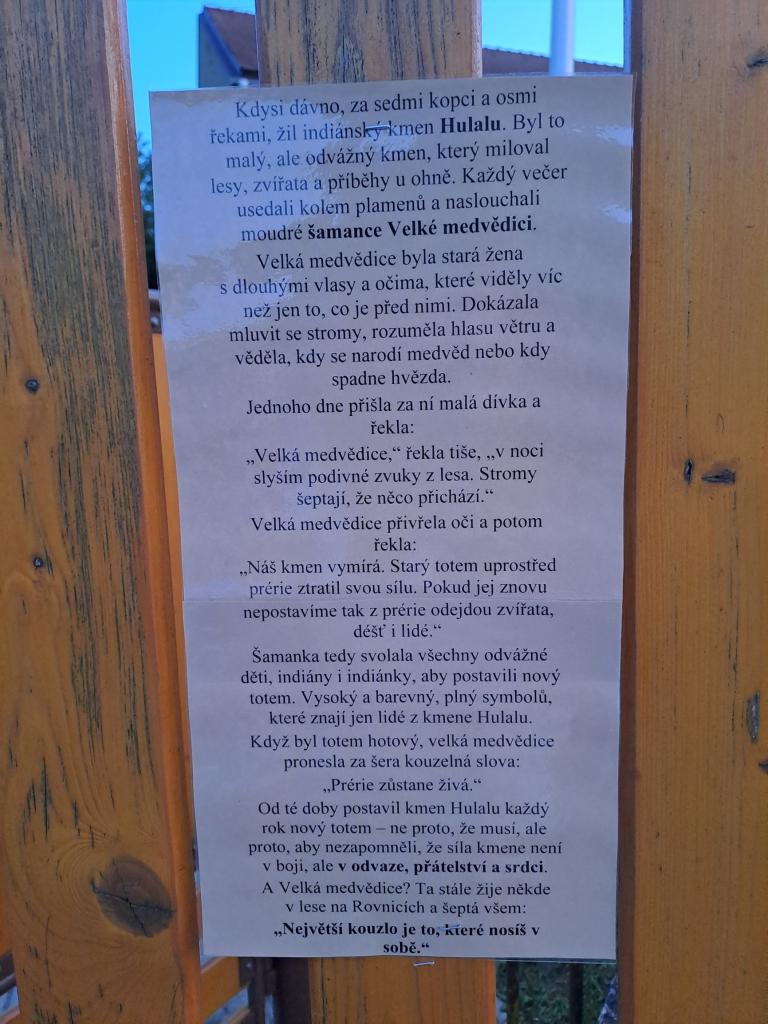 Kdysi dávno, za sedmi kopci a osmi
řekami, žil indiánský kmen Hulalu. Byl to
malý, ale odvážný kmen, který miloval
lesy, zvířata a příběhy u ohně. Každý večer
usedali kolem plamenů a naslouchali
moudré šamance Velké medvědici.
Velká medvědice byla stará žena
s dlouhými vlasy a očima, které viděly víc
než jen to, co je před nimi. Dokázala
mluvit se stromy, rozuměla hlasu větru a
věděla, kdy se narodí medvěd nebo kdy
spadne hvězda.
Jednoho dne přišla za ní malá dívka a
řekla:
„Velká medvědice,“ řekla tiše, „v noci
slyším podivné zvuky z lesa. Stromy
šeptají, že něco přichází.“
Velká medvědice přivřela oči a potom
řekla:
„Náš kmen vymírá. Starý totem uprostřed
prérie ztratil svou sílu. Pokud jej znovu
nepostavíme tak z prérie odejdou zvířata,
déšť i lidé.“
Šamanka tedy svolala všechny odvážné
děti, indiány i indiánky, aby postavili nový
totem. Vysoký a barevný, plný symbolů,
které znají jen lidé z kmene Hulalu.
Když byl totem hotový, velká medvědice
pronesla za šera kouzelná slova:
„Prérie zůstane živá.“
Od té doby postavil kmen Hulalu každý
rok nový totem – ne proto, že musí, ale
proto, aby nezapomněli, že síla kmene není
v boji, ale v odvaze, přátelství a srdci.
A Velká medvědice? Ta stále žije někde
v lese na Rovnicích a šeptá všem:
„Největší kouzlo je to, které nosíš v
sobě.“